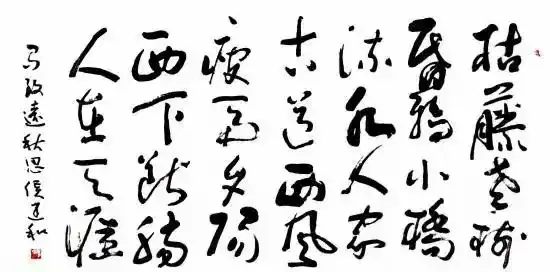 枯藤老樹
昏鴉小橋
流水人家
古道西風
瘦馬夕陽
西下斷腸
人在天涯
馬致遠秋思侯和